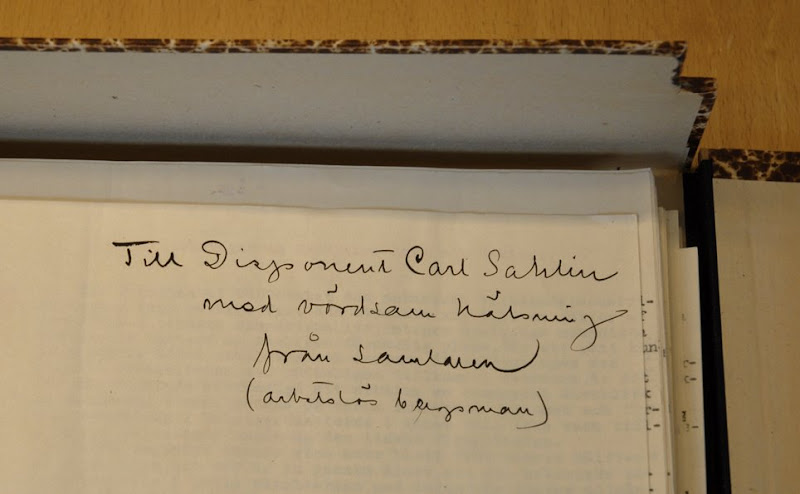 Till Disponent Carl Sahlin
med vördsam hälsning
från samlaren
(arbetslös bergsman)